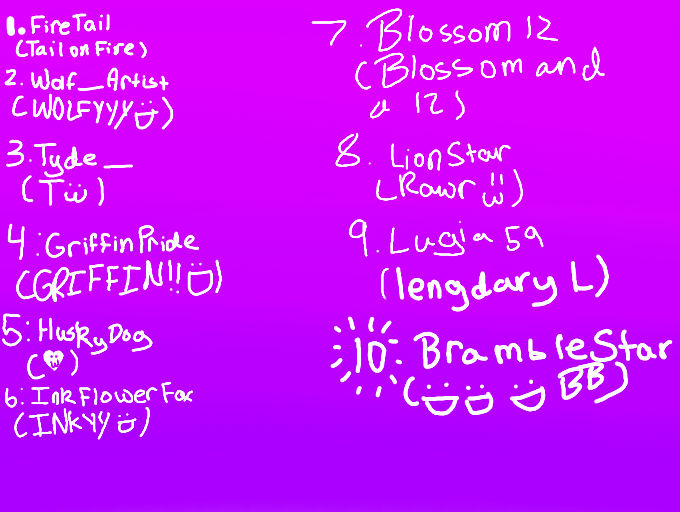 1. FireTail
(Tail on Fire)
2. Wolf_Artist
(WOLFYYY)
3. Tyde_
(T)
4. GriffinPride
(GRIFFIN!!)
5. HuskyDog
6. InkFlowerFox
(INKYY)
7. Blossom 12
(Blossom and
a 12)
8. LionStar
(Rawr)
9. Lugia 59
(lengdary L)
10. BrambleStar
(BB)